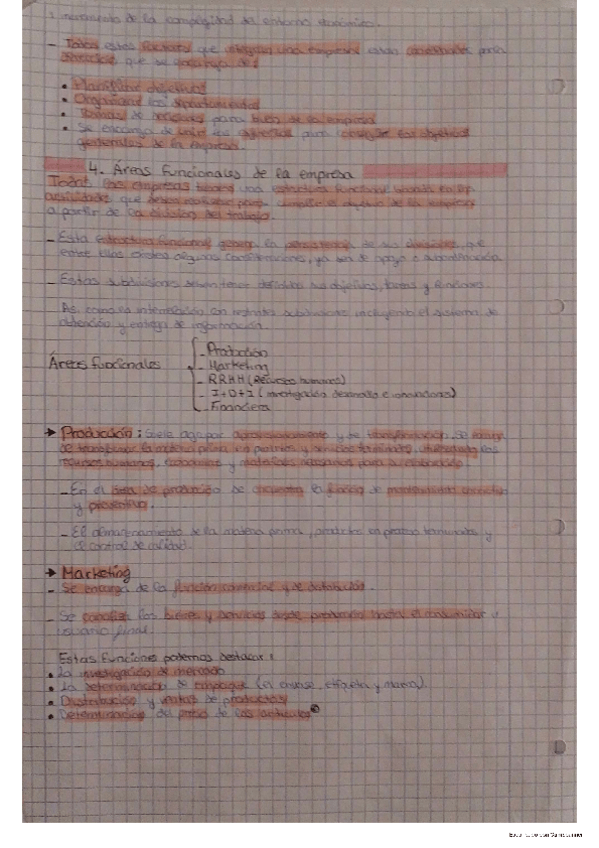 incremento de la complejidad del entorno económico.
- Todos estos factores que integran una empresa están para
que se encarga de:
• Planificar objetivos
• Organizar los departamentos
• Toma de decisiones para bien de la empresa
• Se encarga de unir los para los objetivos
generales de la empresa.
4. Áreas Funcionales de la empresa
Todas las empresas tienen una estructura funcional
que deben realizar para cumplir el objetivo de la empresa
a partir de la división del trabajo.
- Esta estructura funcional genera la de sus que
entre ellas existen algunas ya sea de apoyo o subordinación.
- Estas subdivisiones deben tener definidos sus objetivos, tareas y funciones.
Así como la interrelación con restantes subdivisiones incluyendo el sistema de
obtención y entrega de información.
Áreas funcionales
- Producción
- Marketing
- RRHH (Recursos humanos)
- I+D+I (investigación desarrollo e innovaciones)
- Financiera
→ Producción: Suele agrupar aprovisionamiento y la transformación. Se encarga
de transformar la materia prima en productos y servicios terminados, utilizando los
recursos humanos, económicos y materiales necesarios para su elaboración
- En el área de producción se encuentra la función de mantenimiento correctivo
y preventivo.
- El almacenamiento de la materia prima, productos en proceso terminados y
el control de calidad.
→ Marketing
- Se encarga de la función comercial y de distribución.
- Se canalizan los bienes y servicios desde productor hasta el consumidor o
usuario final.
Estas funciones podemos destacar:
• La investigación de mercado
• La determinación de empaque (el envase, etiqueta y marca).
• Distribución y ventas de productos
• Determinación del precio de los artículos